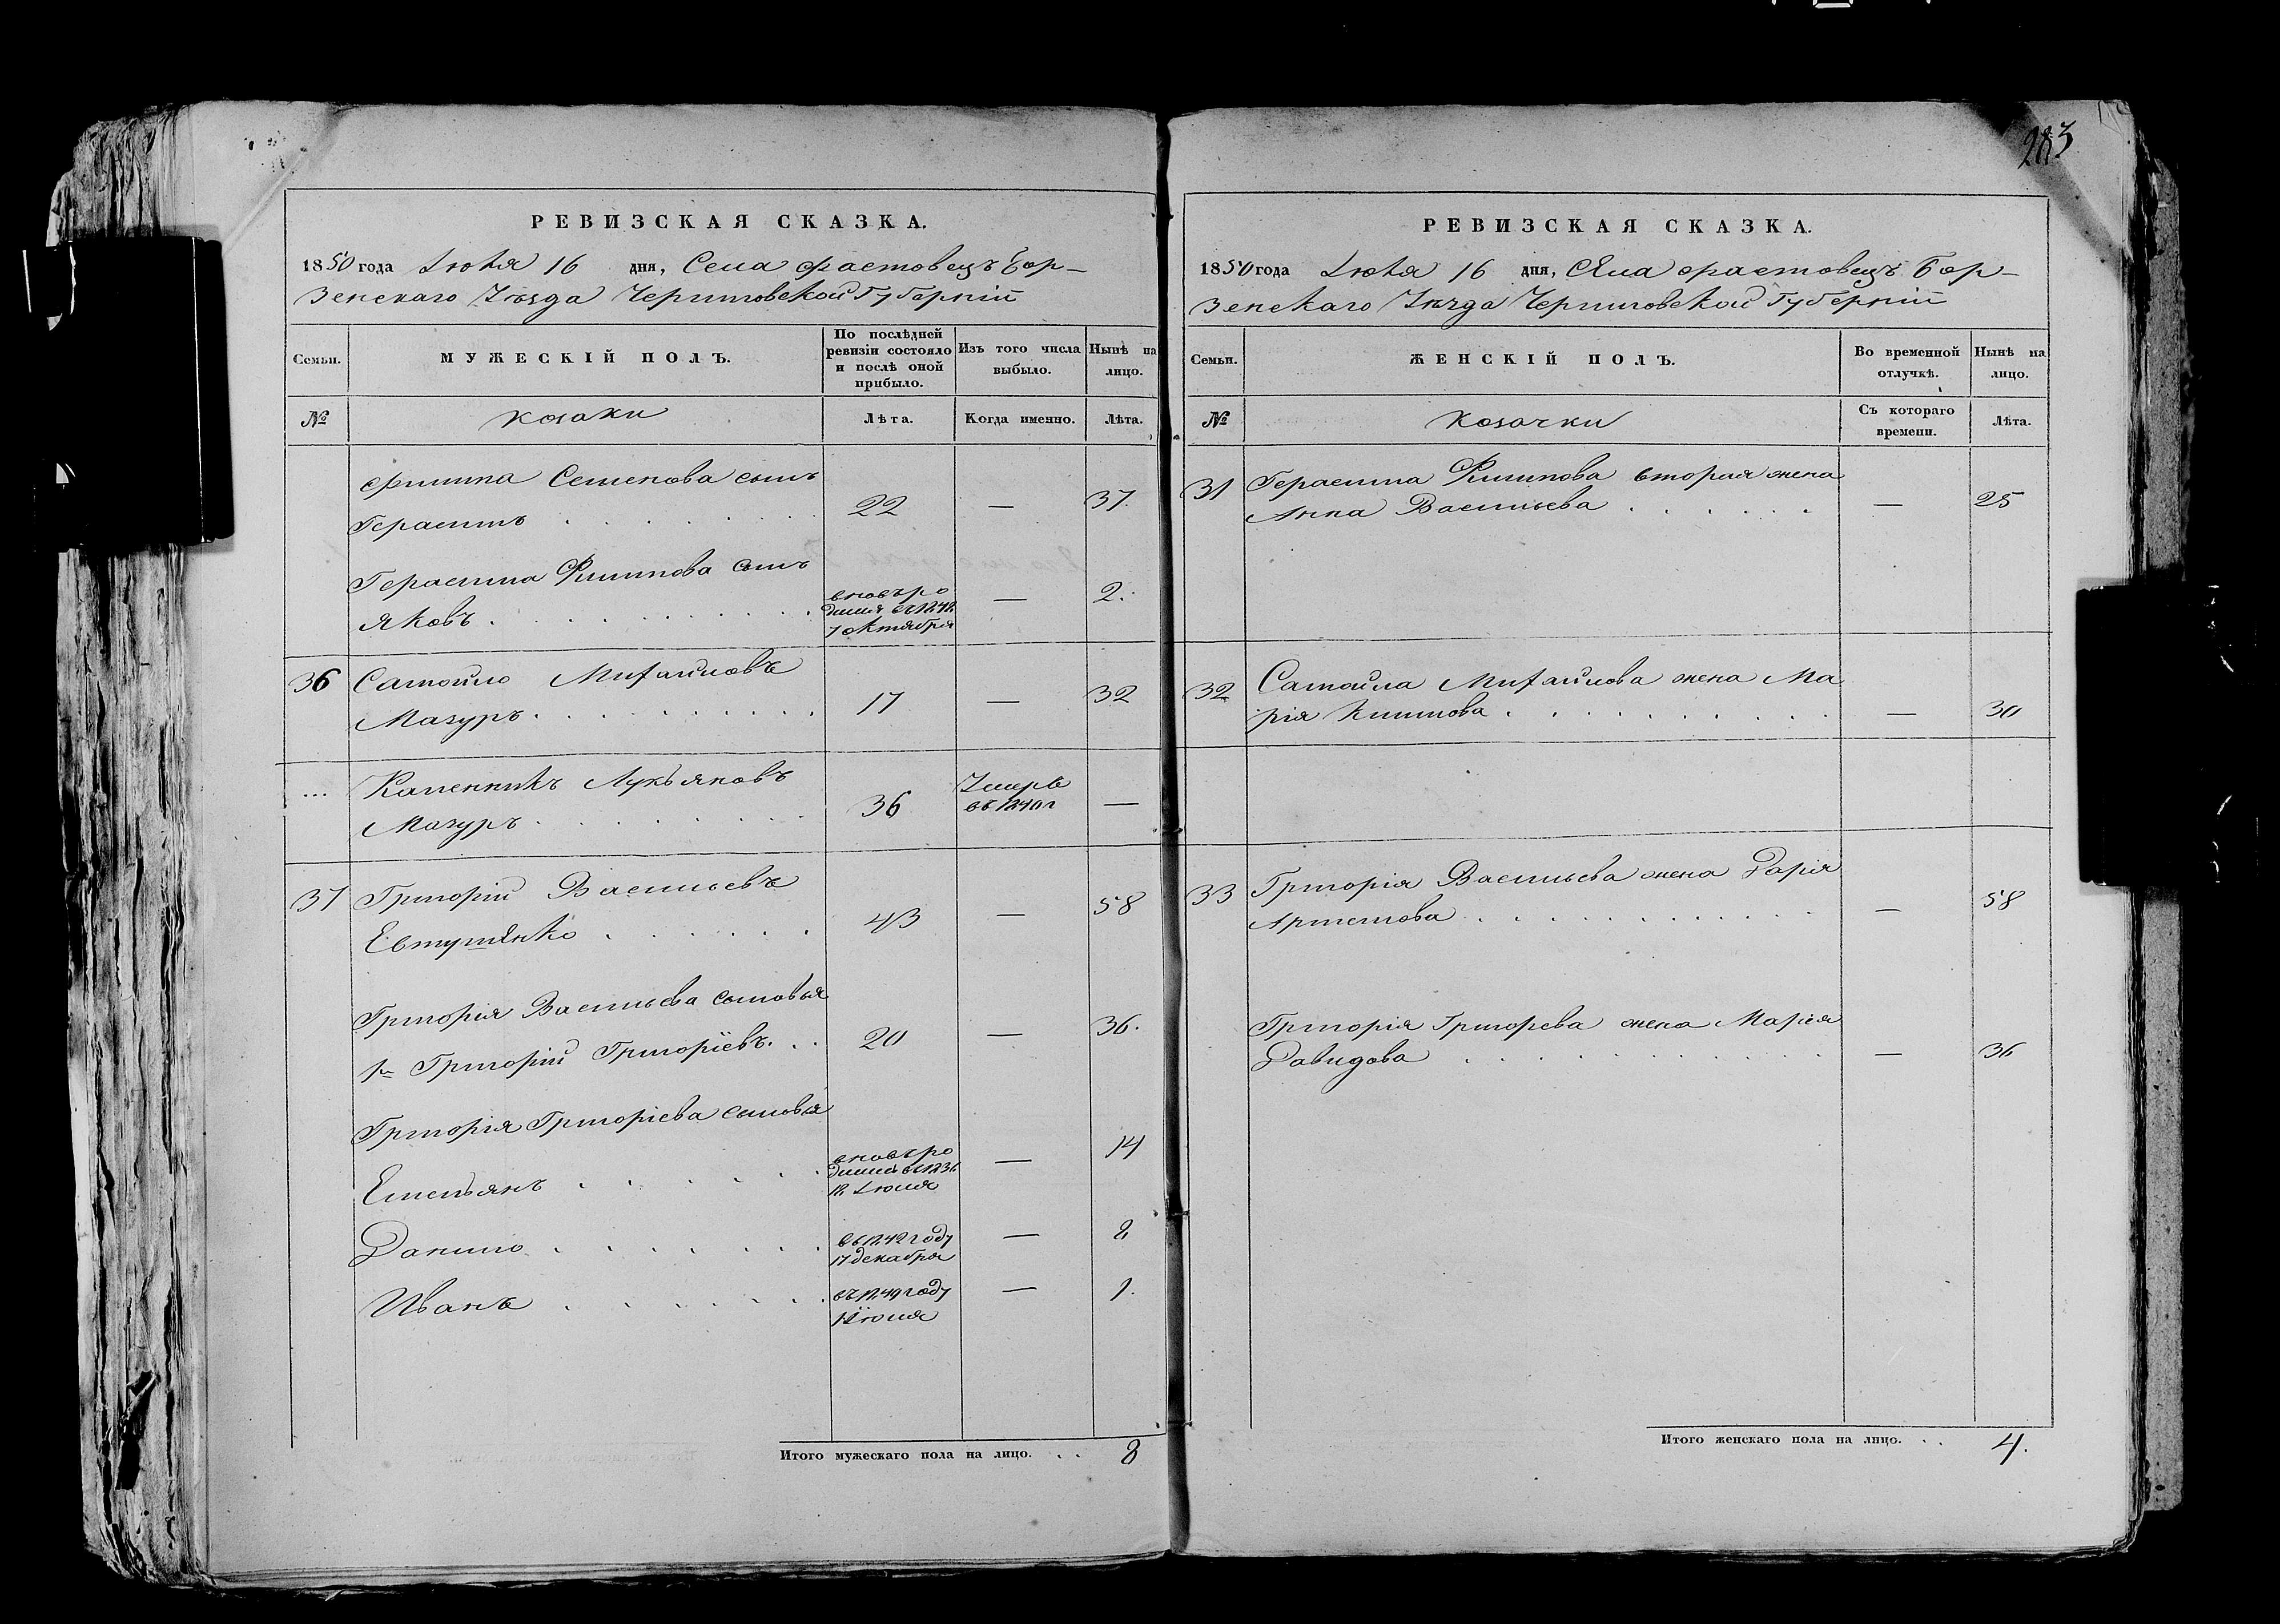 283
РЕВИЗСКАЯ СКАЗКА.
1850 года Июля 16 дня, Села Фастовецъ Бор-
зенскаго Уѣзда Черниговской Губерніи
Семьи.
МУЖЕСКІЙ ПОЛЪ.
По послѣдней ревизіи состояло и послѣ оной прибыло.
Изъ того числа выбыло.
Нынѣ на лицо.
№
козаки
Лѣта.
Когда именно.
Лѣта.
Филипа Семенова сынъ
Герасимъ . . . . . . 22 — 37.
Герасима Филипова сынъ
Яковъ . . . . . . . . вновь ро
дился въ 1848
7 октября — 2.
36 Самойло Михайловъ
Мазуръ . . . . . . . . 17 — 32
... Каленникъ Лукьяновъ
Мазуръ . . . . . . . . 36 Умеръ
въ 1840 г —
37 Григорій Васильевъ
Евтушенко . . . . . . 43 — 58
Григорія Васильева сыновья
1й Григорій Григоріевъ . . . 20 — 36.
Григорія Григоріева сыновья
Емельянъ . . . . . . вновь ро
дился въ 1836
12 Июля — 14
Данило . . . . . . . въ 1842 году
17 декабря — 8
Иванъ . . . . . . . въ 1849 году
Июля — 1.
Итого мужескаго пола на лицо. . . 8
РЕВИЗСКАЯ СКАЗКА.
1850 года Июля 16 дня, Села Фастовецъ Бор-
зенскаго Уѣзда Черниговской Губерніи
Семьи.
ЖЕНСКІЙ ПОЛЪ.
Во временной отлучкѣ.
Нынѣ на лицо.
№
козачки
Съ котораго времени.
Лѣта.
31 Герасима Филипова вторая жена
Анна Васильева . . . . . . — 25
32 Самойла Михайлова жена Ма
рія Климова . . . . . . . . . — 30
33 Григорія Васильева жена Дарія
Артемова . . . . . . . . . . — 58
Григорія Григорева жена Марія
Давидова . . . . . . . . . . — 36
Итого женскаго пола на лицо. . . 4.